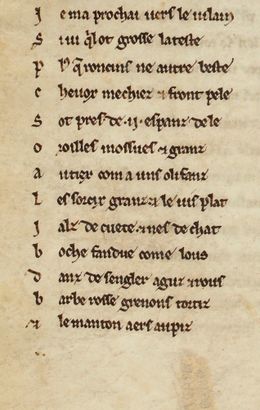 J e ma prochai vers le vilain
S i vi q̃l ot grosse la teste
P lꝰ q̃ roncins ne autre beste
C hevox mechiez ⁊ front pele
S ot pres de .ii. espanz de le
O roilles mossues ⁊ granz
A utiex com a uns olifanz
L es sorcix granz ⁊ le vis plat
I alz de cuete ⁊ nes de chat
B oche fandue come lous
D anz de sengler aguz ⁊ rous
B arbe rosse grenons tortiz
⁊ le manton aers au piz